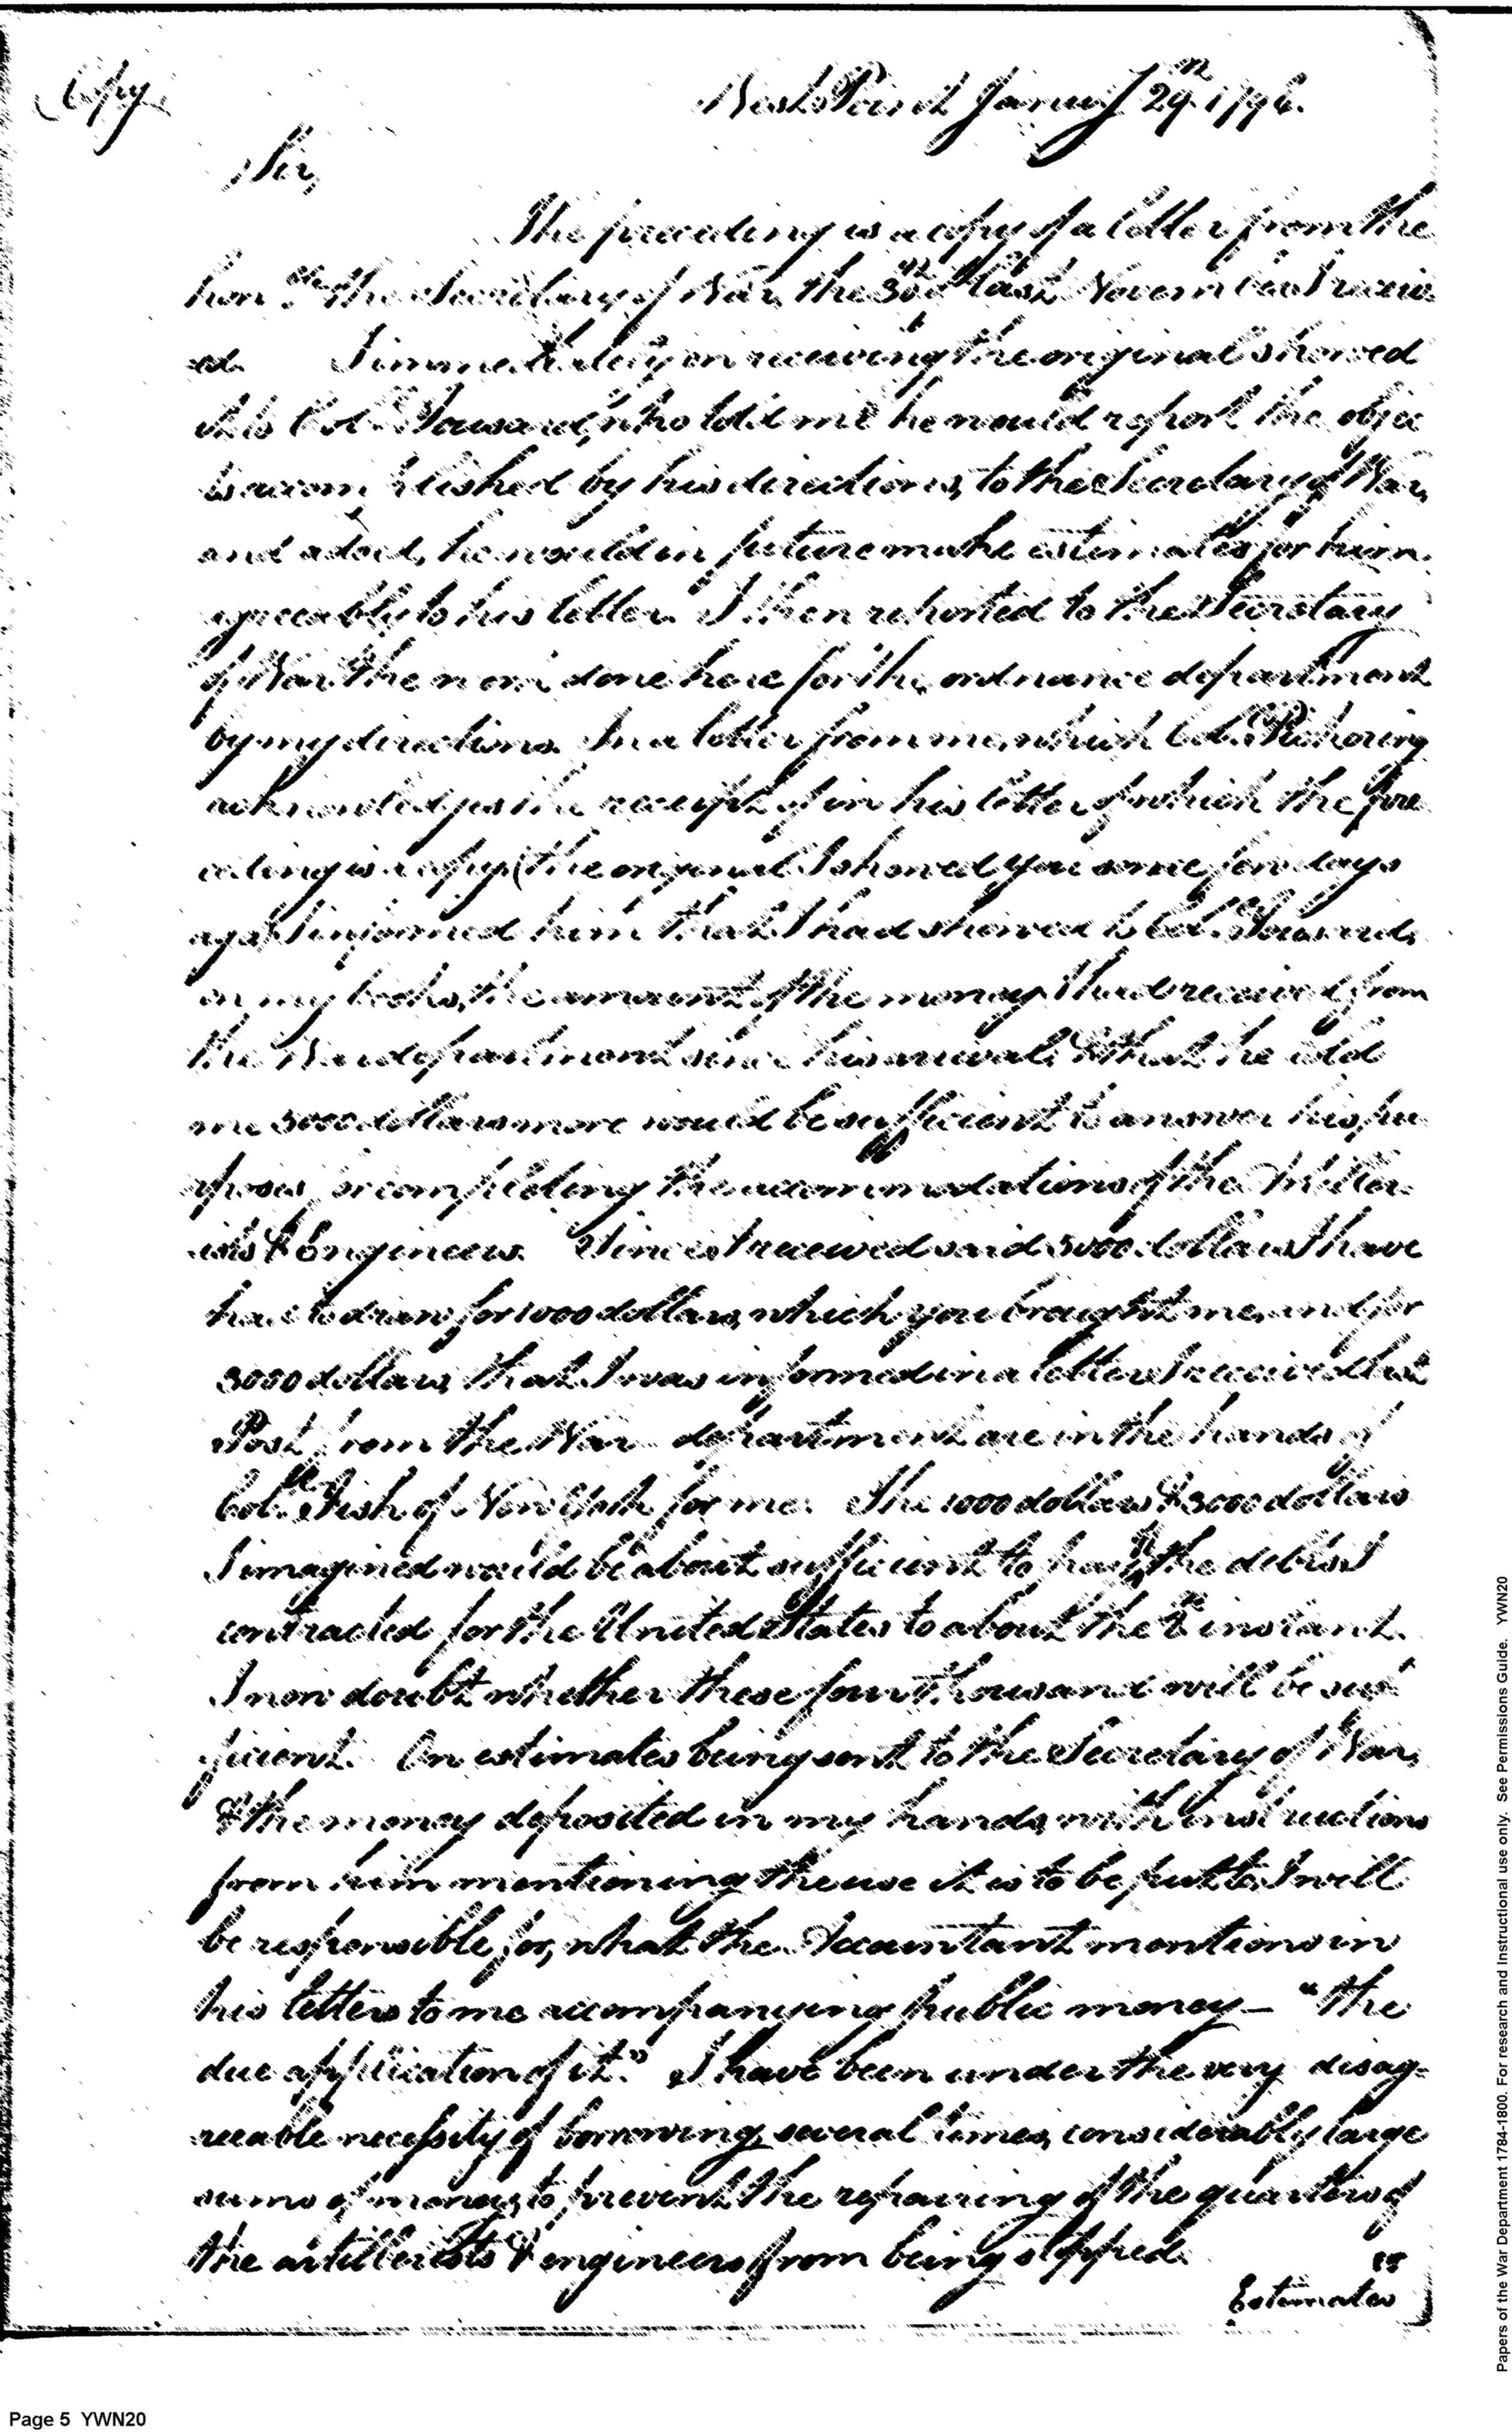 Copy
West Point January 29th 1796.
Sir,
The preceding is a copy of a letter from the
honble the Secretary of War, the 30th last November I receiv
ed. Immediately on receiving the original I showed
it to Colo. Tousard, who told me he would report the objec
ts accomplished by his directions, to the Secretary of War,
and added, he would in future make estimates for him
agreeably to his letter. I then reported to the Secretary
of War the work done here for the ordnance department
by my directions. In a letter from me, which Col. Pickering
acknowledges the receipt of in his letter of which the pre
ceding is a copy (the original I showed you some few days
ago) I informed him that I had showed to Col. Tousard,
on my books, the amount of the money I had received from
the War department since his arrival, & that he told
me 5000 dollars more would be sufficient to answer his pur
poses, in completing the accommodations of the Artiller
ists & Engineers. Since I received said 5000 dollars I have
had to draw for 1000 dollars, which you brought me, and for
3000 dollars, that I was informed in a letter I received last
Post from the War department are in the hands of
Col. Fish of New York for me. The 1000 dollars & 3000 dollars
I imagined would be about sufficient to pay the debts I
contracted for the United States to about the instant.
I now doubt whether these four thousand will be suf
ficient. On estimates being sent to the Secretary of War,
& the money deposited in my hands, with instructions
from him mentioning the use it is to be put to, I will
be responsible for, what the Accountant mentions in
his letters to me accompanying public money — "the
due application of it." I have been under the very disag-
reeable necessity of borrowing, several times, considerably large
sums of money, to prevent the repairing of the quarters of
the artillerists & engineers from being stopped.
"
Estimates
Page 5 YWN20
Papers of the War Department 1784-1800. For research and Instructional use only. See Permissions Guide. YWN20